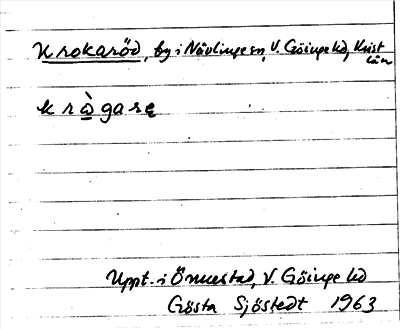 Krokaröd, by i Nävlinge sn, V. Göinge hd, Krist
län
kràgarę
Uppt. i Önnestad, V. Göinge hd
Gösta Sjöstedt 1963